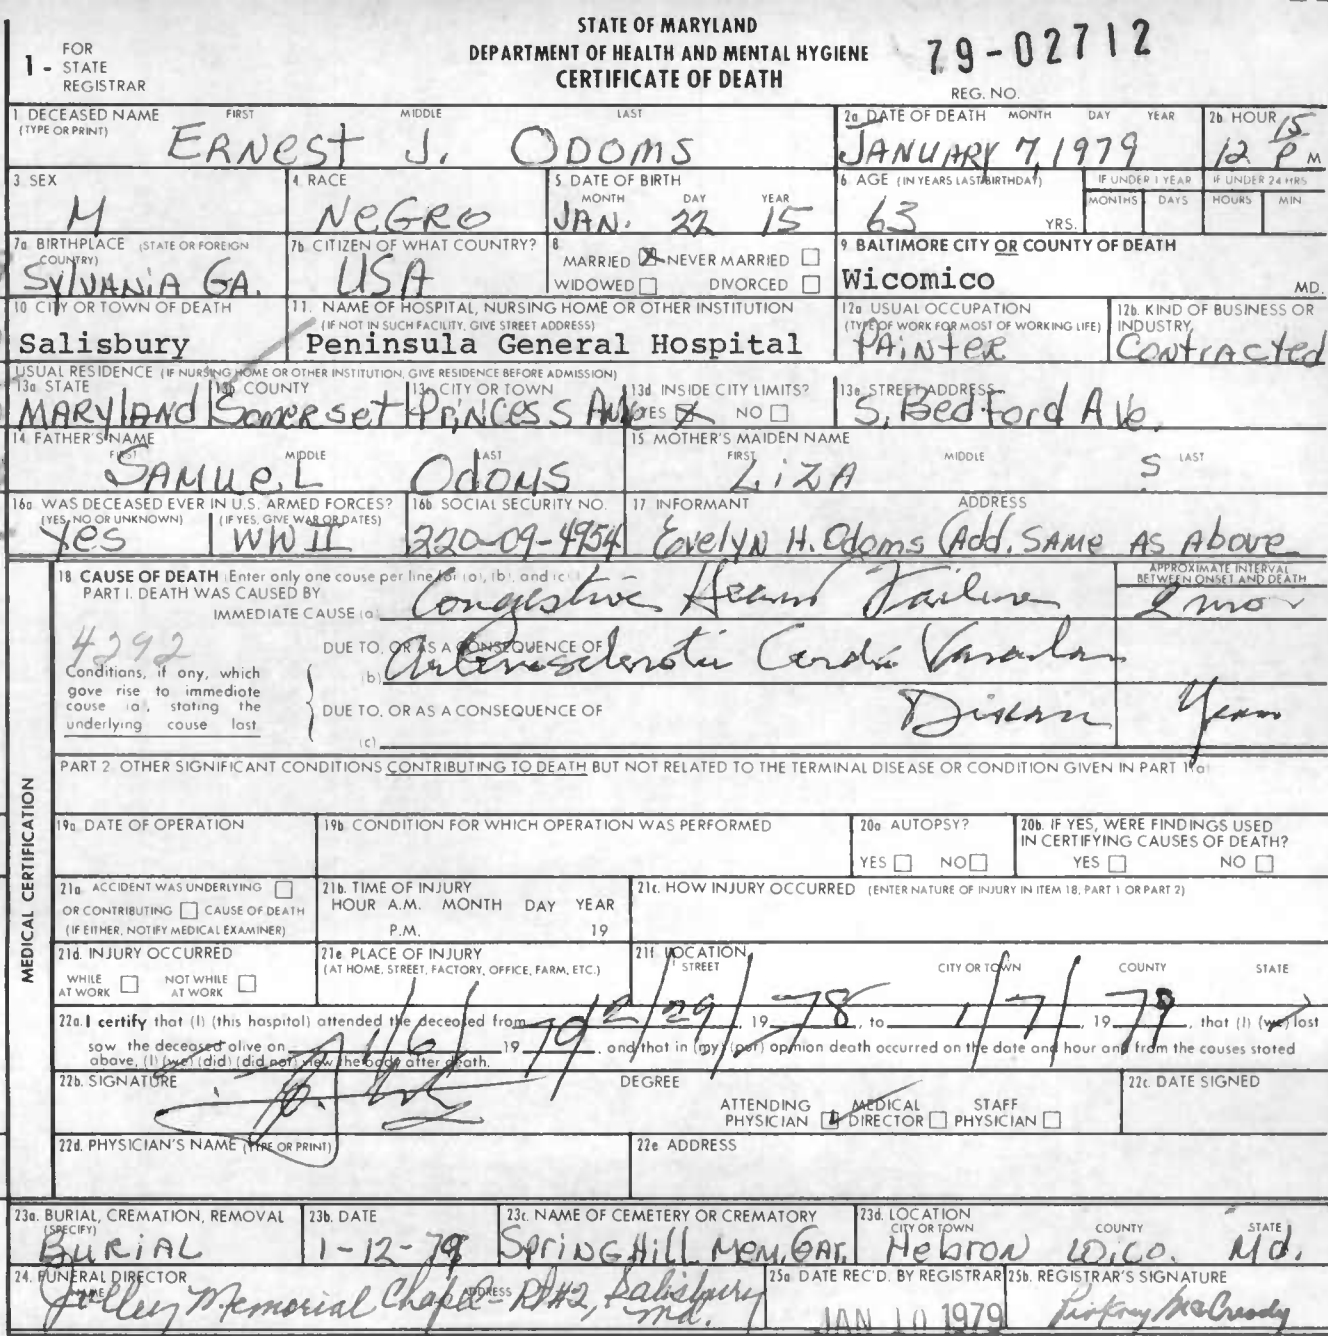 STATE OF MARYLAND
DEPARTMENT OF HEALTH AND MENTAL HYGIENE
CERTIFICATE OF DEATH
1 - FOR STATE REGISTRAR
79-02712
REG. NO.
1 DECEASED NAME (TYPE OR PRINT) FIRST MIDDLE LAST
ERNEST J. ODOMS
2a DATE OF DEATH MONTH DAY YEAR
JANUARY 7, 1979
2b HOUR
12 15 P M
3 SEX
M
4 RACE
NEGRO
5 DATE OF BIRTH MONTH DAY YEAR
JAN. 22 15
6 AGE (IN YEARS LAST BIRTHDAY)
63 YRS.
IF UNDER 1 YEAR MONTHS DAYS
IF UNDER 24 HRS HOURS MIN
7a BIRTHPLACE (STATE OR FOREIGN COUNTRY)
SYLVANIA GA.
7b CITIZEN OF WHAT COUNTRY?
USA
8 MARRIED ☒ NEVER MARRIED ☐
WIDOWED ☐ DIVORCED ☐
9 BALTIMORE CITY OR COUNTY OF DEATH
Wicomico MD.
10 CITY OR TOWN OF DEATH
Salisbury
11. NAME OF HOSPITAL, NURSING HOME OR OTHER INSTITUTION
(IF NOT IN SUCH FACILITY, GIVE STREET ADDRESS)
Peninsula General Hospital
12a USUAL OCCUPATION
(TYPE OF WORK FOR MOST OF WORKING LIFE)
PAINTER
12b. KIND OF BUSINESS OR INDUSTRY
Contracted
USUAL RESIDENCE (IF NURSING HOME OR OTHER INSTITUTION, GIVE RESIDENCE BEFORE ADMISSION)
13a STATE
MARYLAND
13b COUNTY
Somerset
13c CITY OR TOWN
Princess Anne
13d INSIDE CITY LIMITS?
YES ☒ NO ☐
13e STREET ADDRESS
S. Bedford Ave.
14 FATHER'S NAME FIRST MIDDLE LAST
SAMUEL ODOMS
15 MOTHER'S MAIDEN NAME FIRST MIDDLE LAST
LIZA S
16a WAS DECEASED EVER IN U.S. ARMED FORCES?
(YES, NO OR UNKNOWN) (IF YES, GIVE WAR OR DATES)
Yes WW II
16b SOCIAL SECURITY NO.
220-09-4954
17 INFORMANT ADDRESS
Evelyn H. Odoms (Add. SAME AS Above
18 CAUSE OF DEATH (Enter only one cause per line for (a), (b), and (c)
PART I. DEATH WAS CAUSED BY
IMMEDIATE CAUSE (a) Congestive Heart Failure
APPROXIMATE INTERVAL BETWEEN ONSET AND DEATH
2 mos
4292
Conditions, if any, which
gave rise to immediate
cause (a), stating the
underlying cause last
DUE TO, OR AS A CONSEQUENCE OF
(b) Arteriosclerotic Cardio Vascular
Disease Years
DUE TO, OR AS A CONSEQUENCE OF
(c)
PART 2 OTHER SIGNIFICANT CONDITIONS CONTRIBUTING TO DEATH BUT NOT RELATED TO THE TERMINAL DISEASE OR CONDITION GIVEN IN PART 1(a)
MEDICAL CERTIFICATION
19a DATE OF OPERATION
19b CONDITION FOR WHICH OPERATION WAS PERFORMED
20a AUTOPSY?
YES ☐ NO ☐
20b. IF YES, WERE FINDINGS USED
IN CERTIFYING CAUSES OF DEATH?
YES ☐ NO ☐
21a ACCIDENT WAS UNDERLYING ☐
OR CONTRIBUTING ☐ CAUSE OF DEATH
(IF EITHER, NOTIFY MEDICAL EXAMINER)
21b. TIME OF INJURY
HOUR A.M. MONTH DAY YEAR
P.M. 19
21c. HOW INJURY OCCURRED (ENTER NATURE OF INJURY IN ITEM 18, PART 1 OR PART 2)
21d. INJURY OCCURRED
WHILE AT WORK ☐ NOT WHILE AT WORK ☐
21e PLACE OF INJURY
(AT HOME, STREET, FACTORY, OFFICE, FARM, ETC.)
21f LOCATION STREET CITY OR TOWN COUNTY STATE
22a. I certify that (I) (this hospital) attended the deceased from 12/29/, 19 78, to 1/7/, 19 79, that (I) (we) last
saw the deceased alive on 1/6/ 19 79, and that in (my) (our) opinion death occurred on the date and hour and from the causes stated
above, (I) (we) (did) (did not) view the body after death.
22b. SIGNATURE
DEGREE
ATTENDING PHYSICIAN ☑ MEDICAL DIRECTOR ☐ STAFF PHYSICIAN ☐
22c. DATE SIGNED
22d. PHYSICIAN'S NAME (TYPE OR PRINT)
22e ADDRESS
23a. BURIAL, CREMATION, REMOVAL (SPECIFY)
BURIAL
23b. DATE
1-12-79
23c. NAME OF CEMETERY OR CREMATORY
Spring Hill Mem. Gar.
23d. LOCATION CITY OR TOWN COUNTY STATE
Hebron Wico. Md.
24. FUNERAL DIRECTOR NAME ADDRESS
Jolley Memorial Chapel - Rt #2, Salisbury Md.
25a DATE REC'D. BY REGISTRAR
JAN 10 1979
25b. REGISTRAR'S SIGNATURE
McCready